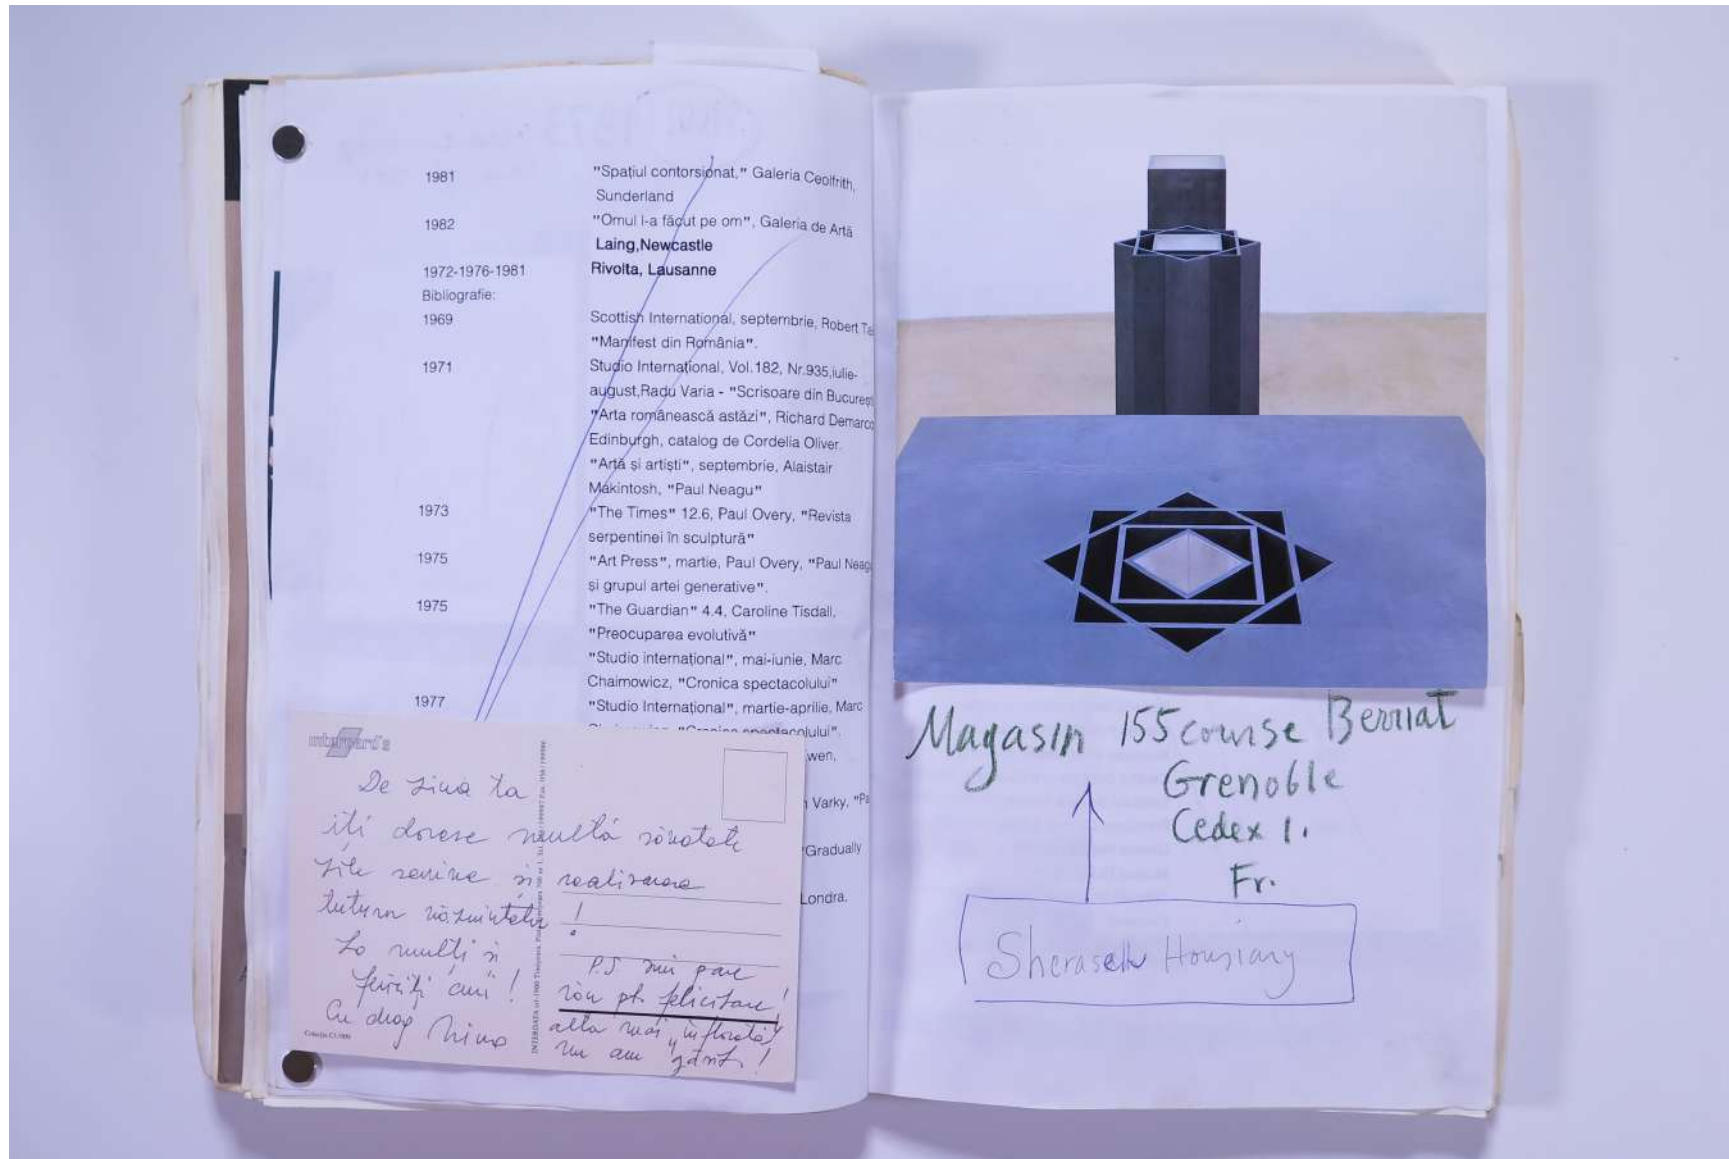 1981 "Spațiul contorsionat," Galeria Ceolfrith,
Sunderland
1982 "Omul l-a făcut pe om", Galeria de Artă
Laing,Newcastle
1972-1976-1981 Rivolta, Lausanne
Bibliografie:
1969 Scottish International, septembrie, Robert
"Manifest din România".
1971 Studio Internațional, Vol.182, Nr.935,iulie-
august,Radu Varia - "Scrisoare din Bucureș
"Arta românească astăzi", Richard Demarco
Edinburgh, catalog de Cordelia Oliver.
"Artă și artiști", septembrie, Alaistair
Makintosh, "Paul Neagu"
1973 "The Times" 12.6, Paul Overy, "Revista
serpentinei în sculptură"
1975 "Art Press", martie, Paul Overy, "Paul Neag
și grupul artei generative".
1975 "The Guardian" 4.4, Caroline Tisdall,
"Preocuparea evolutivă"
"Studio internațional", mai-iunie, Marc
Chaimowicz, "Cronica spectacolului"
1977 "Studio Internațional", martie-aprilie, Marc
wen,
Varky, "Pa
Gradually
Londra.
intercard's
De ziua ta
îți doresc multă sănătate
zile senine și realizarea
tuturor năzuințelor !
La mulți și
fericiți ani !
Cu drag Nina
P.S îmi pare
rău pt. felicitare!
alta mai "înflorată"
nu am găsit !
Magasin 155 course Berriat
Grenoble
Cedex 1.
Fr.